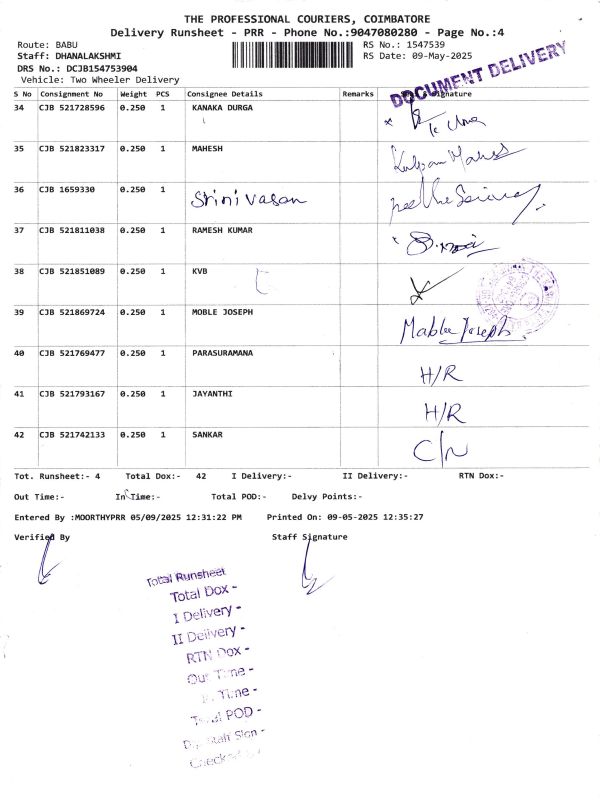 THE PROFESSIONAL COURIERS, COIMBATORE
Delivery Runsheet - PRR - Phone No.:9047080280 - Page No.:4
Route: BABU
RS No.: 1547539
Staff: DHANALAKSHMI
RS Date: 09-May-2025
DRS No.: DCJB154753904
Vehicle: Two Wheeler Delivery
DOCUMENT DELIVERY
S No Consignment No Weight PCS Consignee Details Remarks Signature
34 CJB 521728596 0.250 1 KANAKA DURGA
35 CJB 521823317 0.250 1 MAHESH
36 CJB 1659330 0.250 1 Srinivasan
37 CJB 521811038 0.250 1 RAMESH KUMAR
38 CJB 521851089 0.250 1 KVB
39 CJB 521869724 0.250 1 MOBLE JOSEPH Mable Joseph
40 CJB 521769477 0.250 1 PARASURAMANA H/R
41 CJB 521793167 0.250 1 JAYANTHI H/R
42 CJB 521742133 0.250 1 SANKAR C/N
Tot. Runsheet:- 4 Total Dox:- 42 I Delivery:- II Delivery:- RTN Dox:-
Out Time:- In Time:- Total POD:- Delvy Points:-
Entered By :MOORTHYPRR 05/09/2025 12:31:22 PM Printed On: 09-05-2025 12:35:27
Verified By Staff Signature
Total Runsheet
Total Dox -
I Delivery -
II Delivery -
RTN Dox -
Out Time -
In Time -
Total POD -
Sign -
Checked